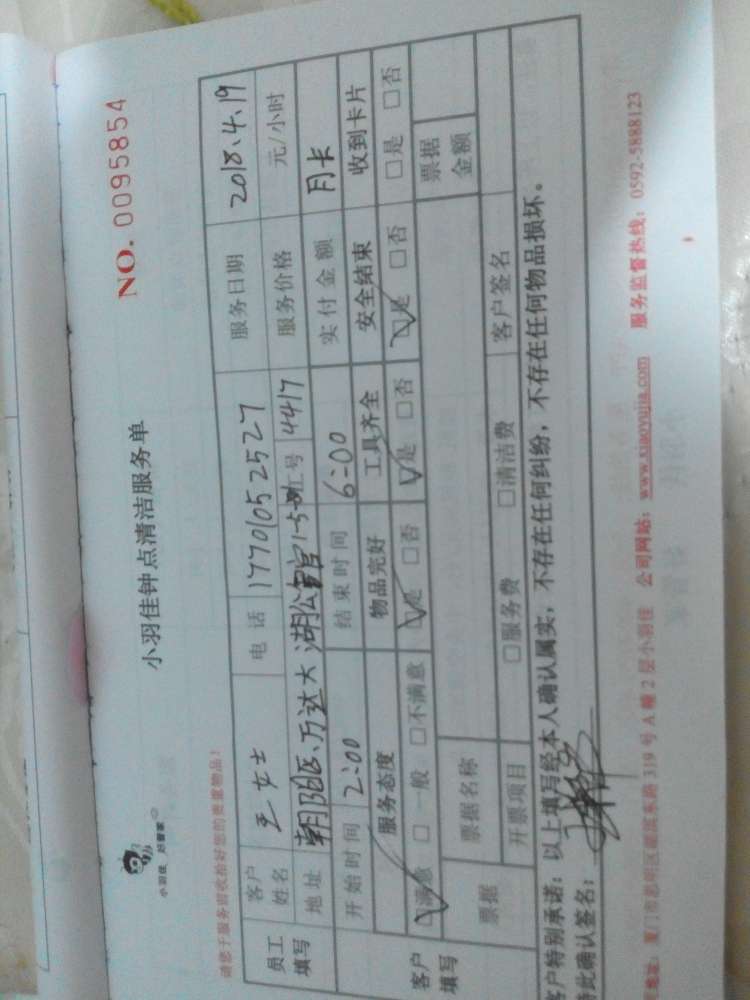 小羽佳 好管家
小羽佳钟点清洁服务单
NO. 0095854
请您于服务前收拾好您的贵重物品!
员工填写
客户姓名 王女士 电话 17701052527 服务日期 2018.4.19
地址 朝阳区、万达大湖公馆 工号 4417 服务价格 元/小时
开始时间 2:00 结束时间 6:00 实付金额 月卡
客户填写
服务态度 物品完好 工具齐全 安全结束 收到卡片
□满意 □一般 □不满意 □是 □否 □是 □否 □是 □否 □是 □否
票据 票据名称 票据金额
开票项目 □服务费 □清洁费 客户签名
客户特别承诺:以上填写经本人确认属实,不存在任何纠纷,不存在任何物品损坏。
特此确认签名:
地址:厦门市思明区湖滨东路 319 号 A 幢 2 层小羽佳 公司网站:www.xiaoyujia.com 服务监督热线:0592-5888123